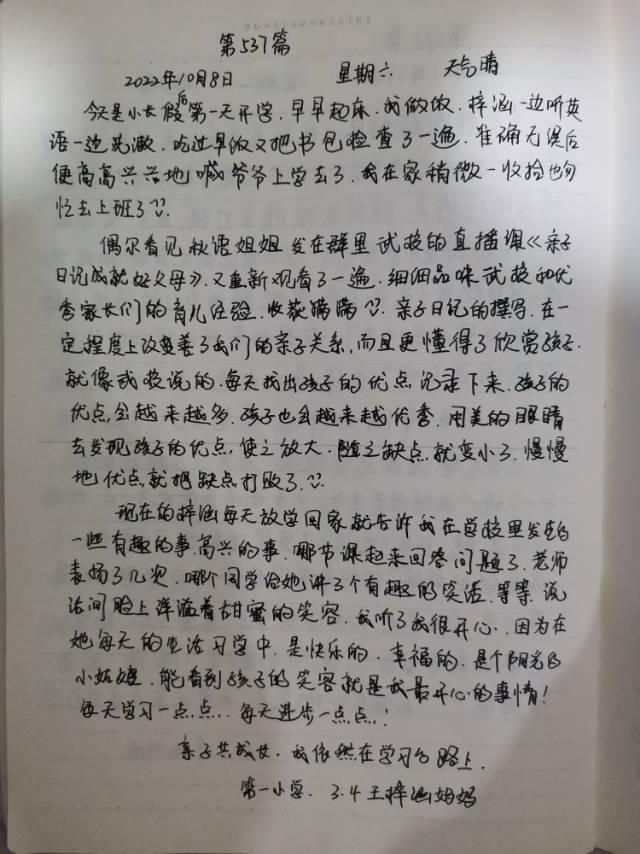 第537篇
2022年10月8日 星期六 天气晴
今天是小长假后第一天开学，早早起床，我做饭，梓涵一边听英
语一边洗漱，吃过早饭又把书包检查了一遍，准确无误后
便高高兴兴地喊爷爷上学去了，我在家稍微一收拾也匆
忙去上班了
偶尔看见秋语姐姐发在群里武校的直播课《亲子
日记成就好父母》，又重新观看了一遍，细细品味武校和优
秀家长们的育儿经验，收获满满，亲子日记的撰写，在一
定程度上改善了我们的亲子关系，而且更懂得了欣赏孩子，
就像武校说的，每天找出孩子的优点，记录下来，孩子的
优点会越来越多，孩子也会越来越优秀，用美的眼睛
去发现孩子的优点，使之放大，随之缺点就变小了，慢慢
地优点就把缺点打败了
现在的梓涵每天放学回家就告诉我在学校里发生的
一些有趣的事，高兴的事，哪节课起来回答问题了，老师
表扬了几次，哪个同学给她讲了个有趣的笑话，等等，说
话间脸上洋溢着甜蜜的笑容，我听了我很开心，因为在
她每天的生活习学中，是快乐的，幸福的，是个阳光的
小姑娘，能看到孩子的笑容就是我最开心的事情！
每天学习一点点，每天进步一点点！
亲子共成长，我依然在学习的路上，
第一小学，3.4王梓涵妈妈